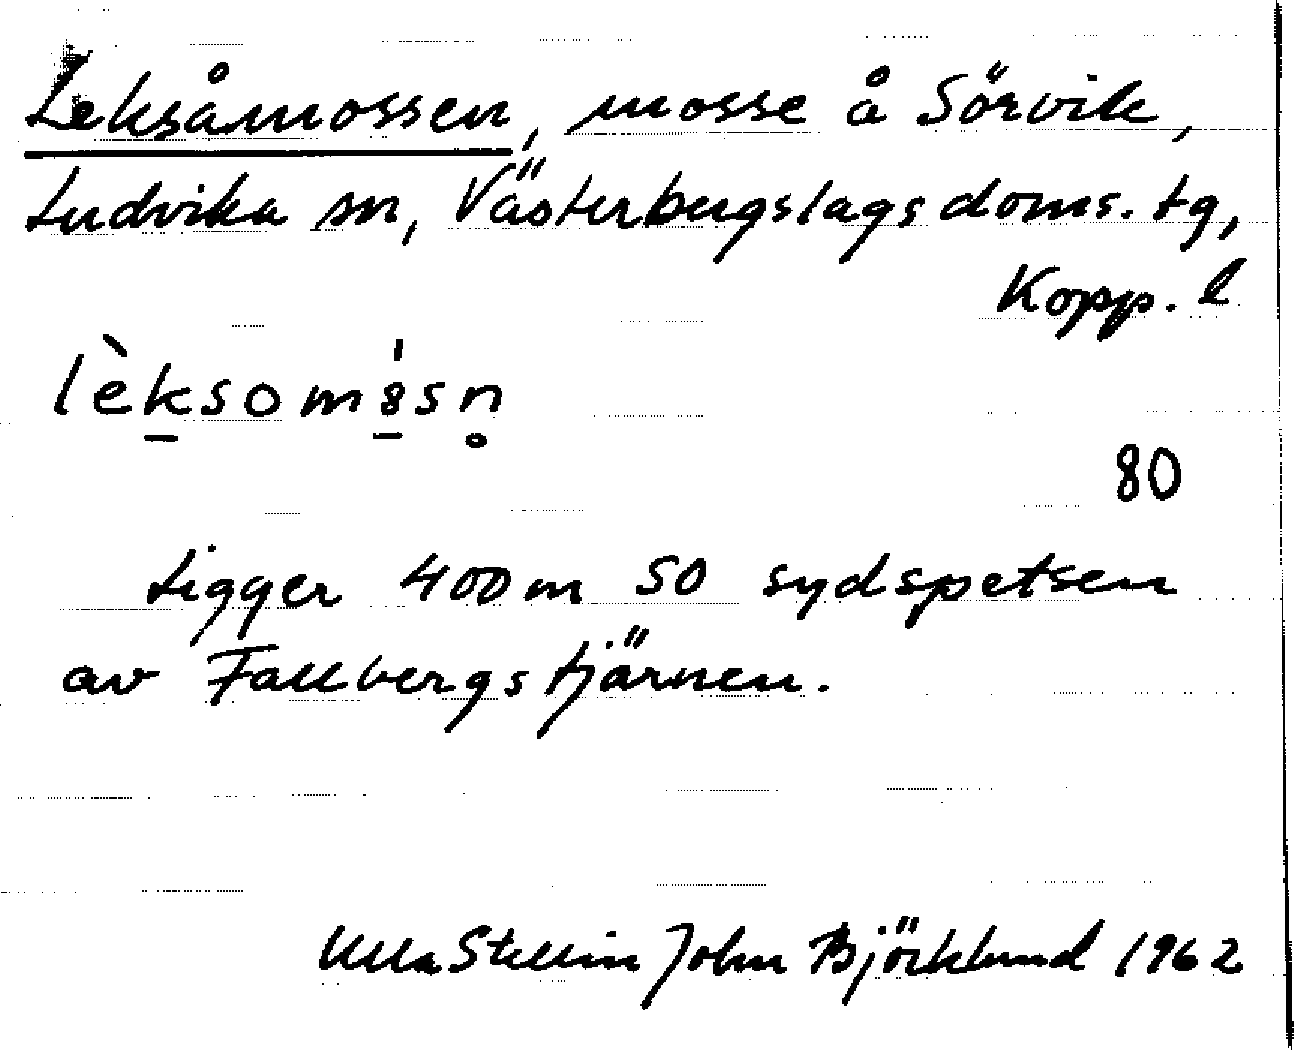 Leksåmossen, mosse å Sörvik,
Ludvika sn, Västerbergslags doms. tg,
Kopp. l
lèksom8sn̥
80
Ligger 400m SO sydspetsen
av Fallbergstjärnen.
Ulla Stellin John Björklund 1962